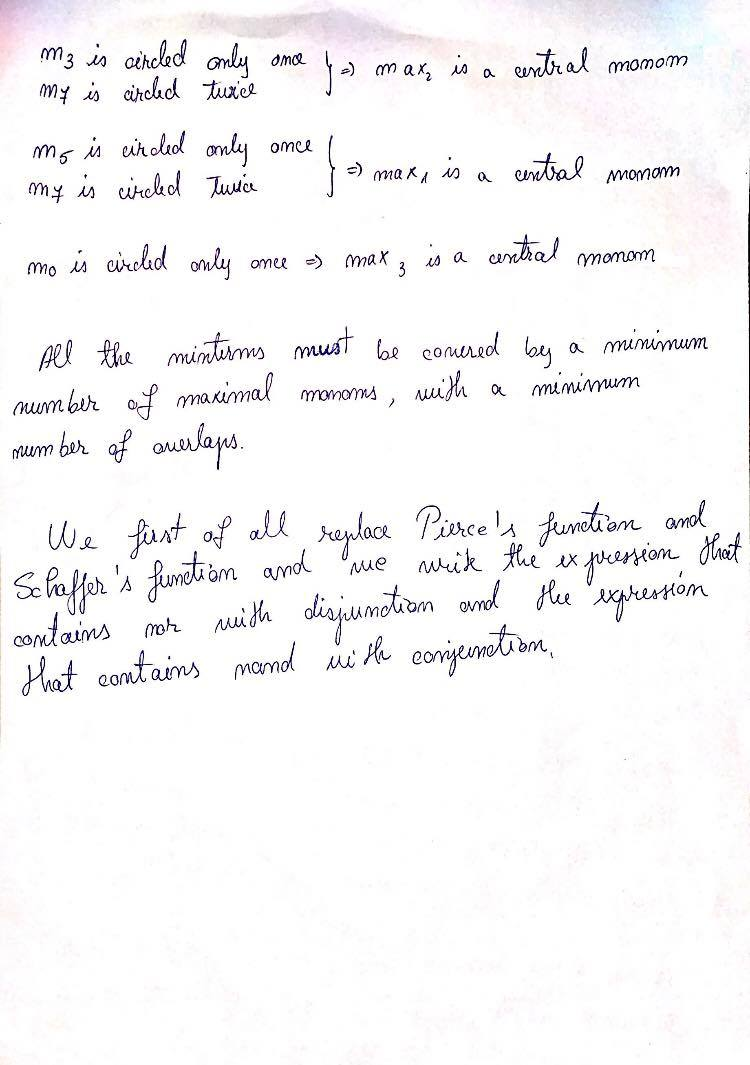 m3 is circled only once } => max2 is a central monom
m7 is circled twice
m5 is circled only once } => max1 is a central monom
m7 is circled twice
m0 is circled only once => max3 is a central monom
All the minterms must be covered by a minimum
number of maximal monoms, with a minimum
number of overlaps.
We first of all replace Pierce's function and
Schaffer's function and we write the expression that
contains nor with disjunction and the expression
that contains nand with conjunction.